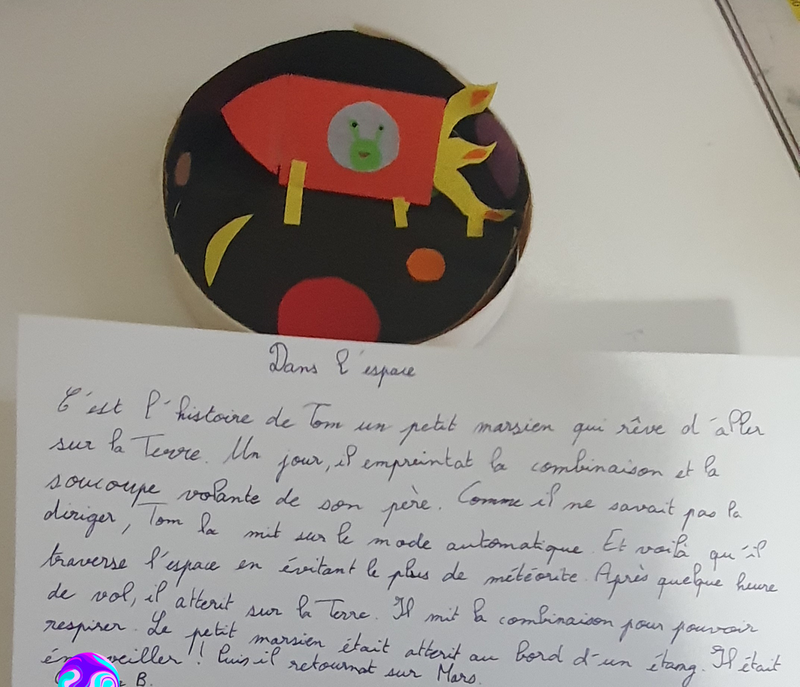 Dans l'espace
C'est l'histoire de Tom un petit marsien qui rêve d'aller
sur la Terre. Un jour, il empreintat la combinaison et la
soucoupe volante de son père. Comme il ne savait pas la
diriger, Tom la mit sur le mode automatique. Et voilà qu'il
traverse l'espace en évitant le plus de météorite. Après quelque heure
de vol, il atterit sur la Terre. Il mit la combinaison pour pouvoir
respirer. Le petit marsien était atterit au bord d'un étang. Il était
! Puis il retournat sur Mars.
B.